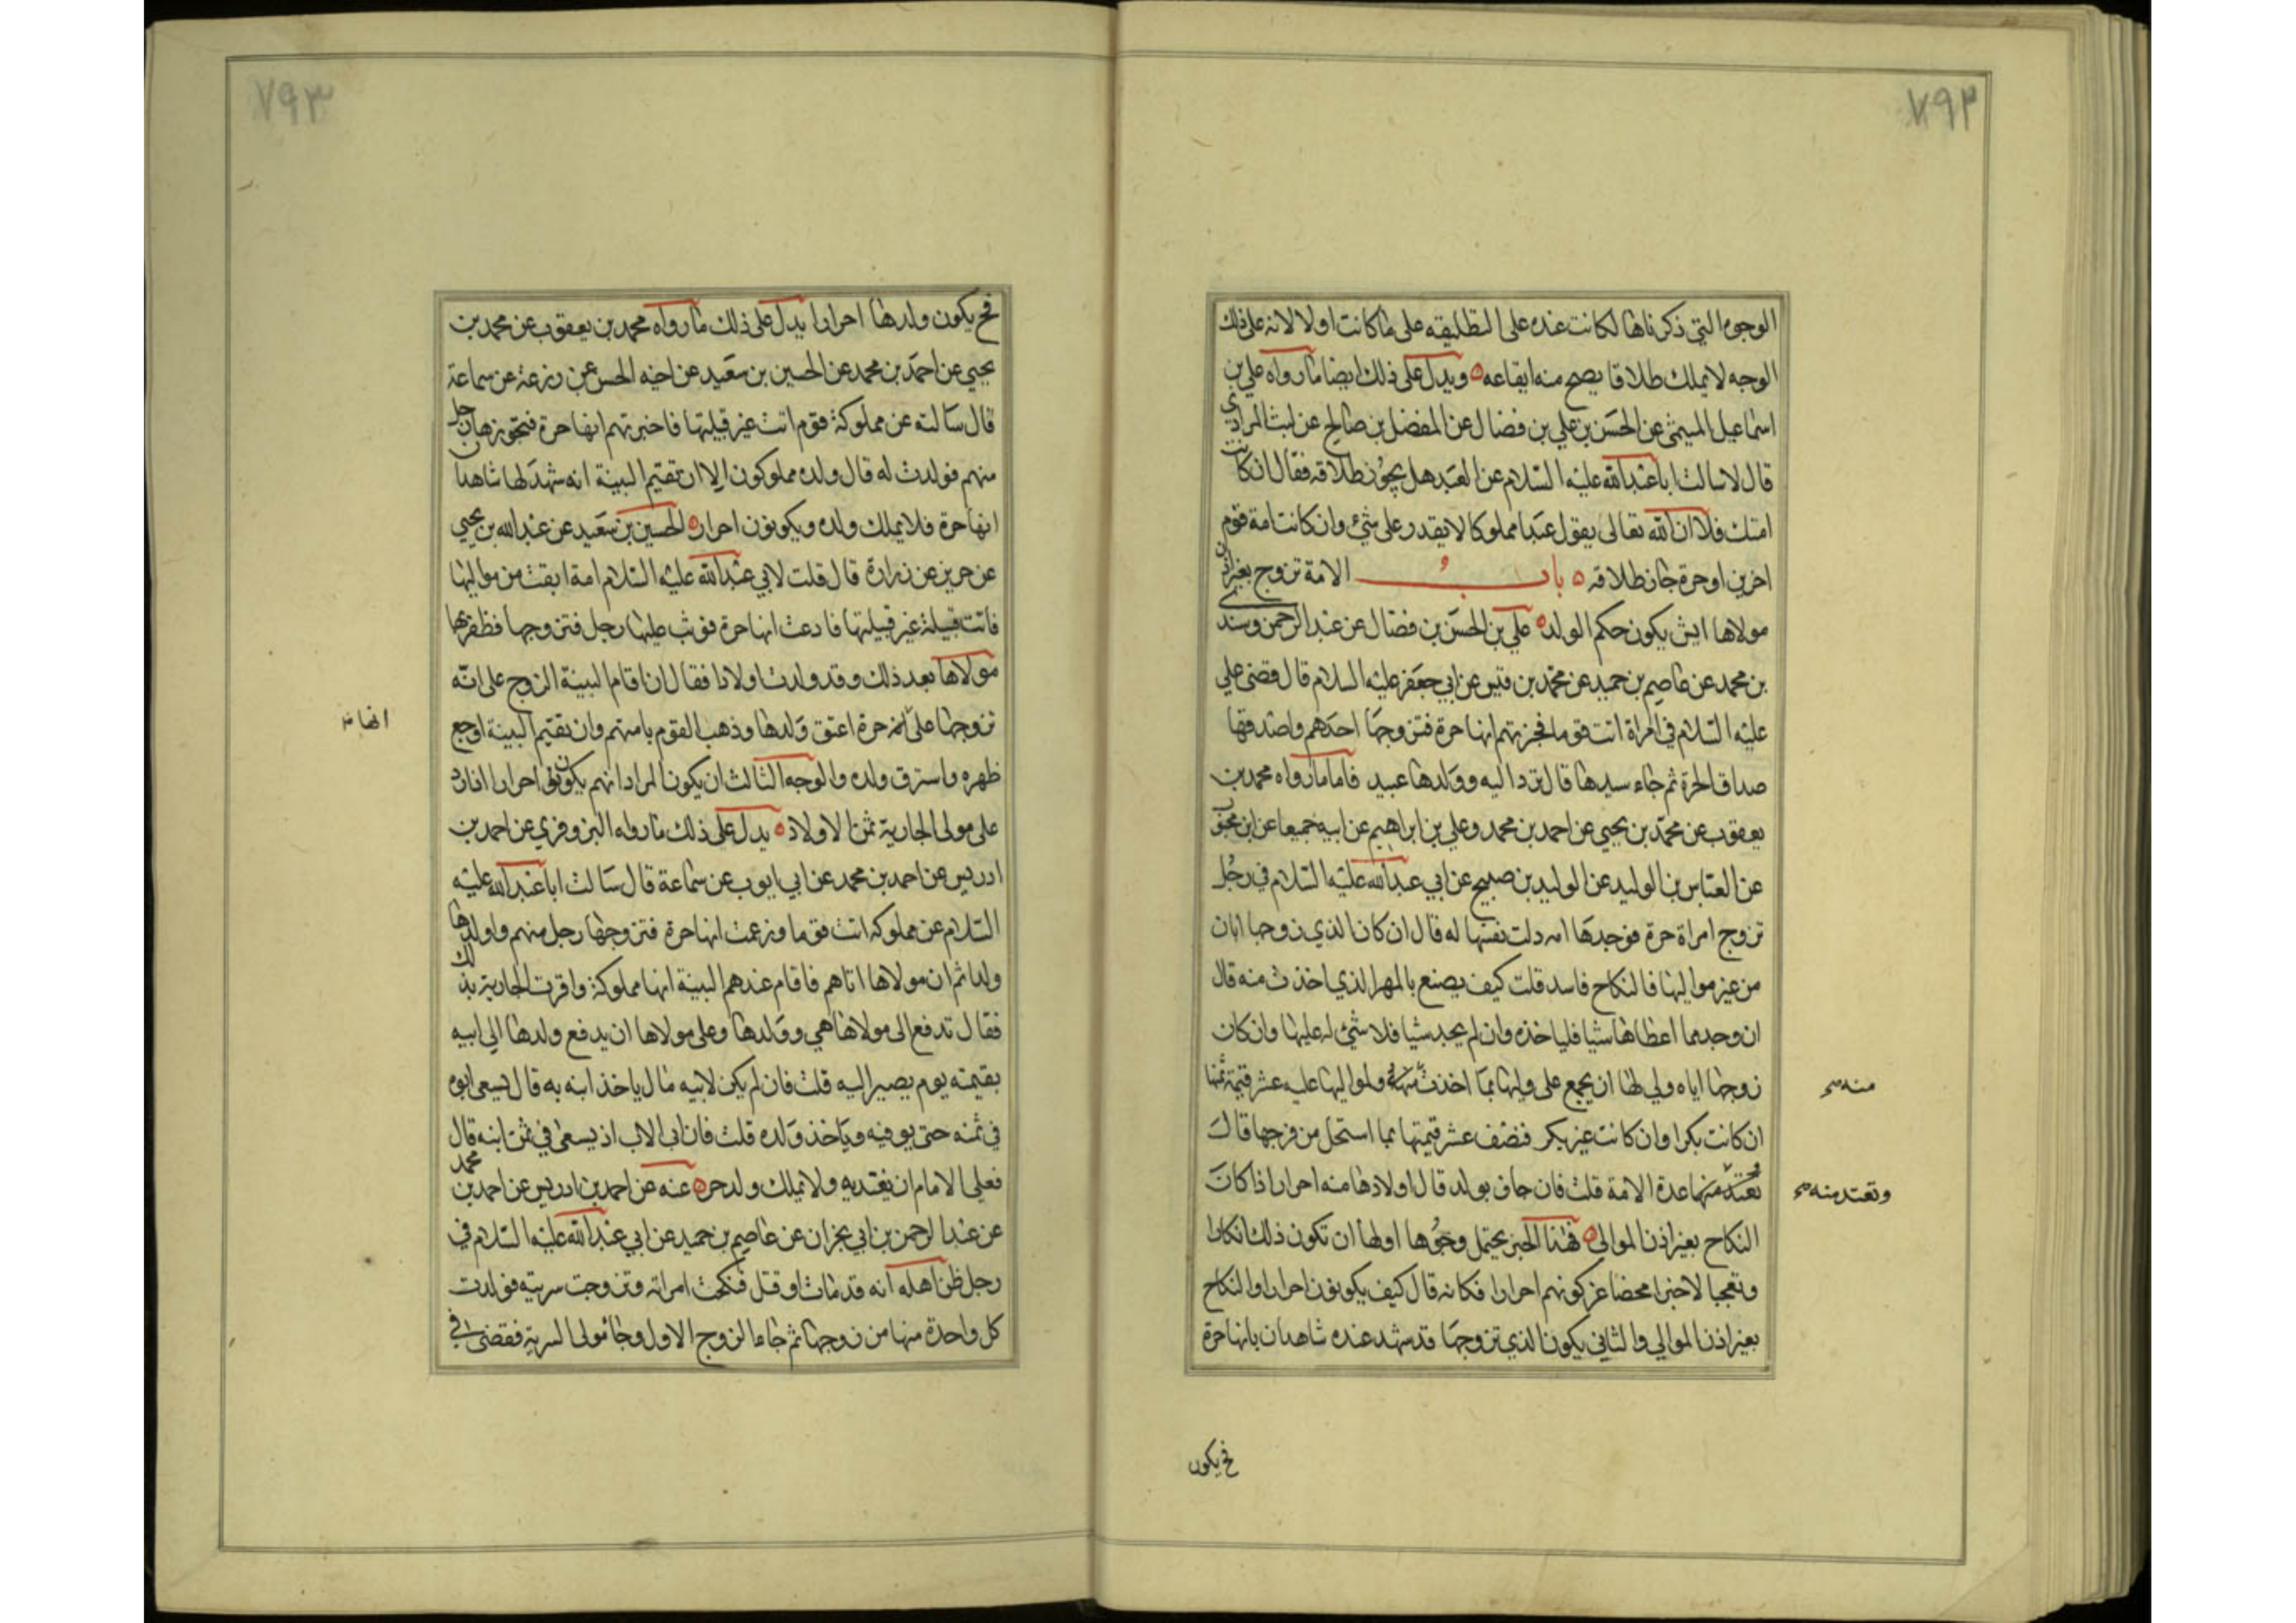 ٧٩٢
الوجوه التي ذكرناها لكانت عنده على التطليقه على ما كانت اولا لانه على ذلك
الوجه لا يملك طلاقا يصح منه ايقاعه ه ويدل على ذلك ايضا ما رواه علي بن
اسماعيل الميثمي عن الحسن بن علي بن فضال عن المفضل بن صالح عن ليث المرادي
قال لا سالت ابا عبد الله عليه السلام عن العبد هل يجوز طلاقه فقال ان كانت
امتك فلا ان الله تعالى يقول عبدا مملوكا لا يقدر على شئ وان كانت امة قوم
اخرين او حرة جاز طلاقه ه باب الامة تزوج بغير اذن
مولاها ايش يكون حكم الولد ه علي بن الحسن بن فضال عن عبد الرحمن وسندي
بن محمد عن عاصم بن حميد عن محمد بن قيس عن ابي جعفر عليه السلام قال قضى علي
عليه السلام في امراة اتت قوما فخبرتهم انها حرة فتزوجها احدهم واصدقها
صداق الحرة ثم جاء سيدها قال ترد اليه وولدها عبيد فاما ما رواه محمد بن
يعقوب عن محمد بن يحيي عن احمد بن محمد وعلي بن ابراهيم عن ابيه جميعا عن ابن محبوب
عن العباس بن الوليد عن الوليد بن صبيح عن ابي عبد الله عليه السلام في رجل
تزوج امراة حرة فوجدها امه دلت نفسها له قال ان كان الذي زوجها اياه
من غير مواليها فالنكاح فاسد قلت كيف يصنع بالمهر الذي اخذت منه قال
ان وجد مما اعطاها شيا فلياخذه وان لم يجد شيا فلا شئ له عليها وان كان
زوجها اياه ولي لها ان يجمع على وليها بما اخذت منه ولمواليها عليه عشر قيمة ثمنها
منه
ان كانت بكرا وان كانت غير بكر فنصف عشر قيمتها بما استحل من فرجها قال
تعتد منها عدة الامة قلت فان جات بولد قال اولادها منه احرار اذا كان
وتعتد منه
النكاح بغير اذن الموالي ه فهذا الخبر يحتمل وجوها اولها ان تكون ذلك انكارا
وتعجبا لا خبرا محضا عن كونهم احرارا فكانه قال كيف يكونون احرارا والنكاح
بغير اذن الموالي والثاني يكون الذي تزوجها قد شهد عنده شاهدان بانها حرة
فح يكون
٧٩٣
فح يكون ولدها احرارا يدل على ذلك ما رواه محمد بن يعقوب عن محمد بن
يحيي عن احمد بن محمد عن الحسين بن سعيد عن اخيه الحسن عن زرعة عن سماعة
قال سالته عن مملوكة قوم اتت غير قبيلتها فاخبرتهم انها حرة فتجوزها رجل
منهم فولدت له قال ولده مملوكون الا ان تقيم البينة انه شهد لها شاهدان
انها حرة فلا يملك ولده ويكونون احرار ه الحسين بن سعيد عن عبد الله بن يحيي
عن حريز عن زرارة قال قلت لابي عبد الله عليه السلام امة ابقت من مواليها
فاتت قبيلة غير قبيلتها فادعت انها حرة فوثب عليها رجل فتزوجها فظفر بها
مولاها بعد ذلك وقد ولدت اولادا فقال ان اقام البينة الزوج على انه
تزوجها على انه حرة اعتق ولدها وذهب القوم بامتهم وان لم يقيم البينة اوجع
انها
ظهره واسترق ولده والوجه الثالث ان يكون المراد انهم يكونون احرارا اذا رد
على مولى الجارية ثمن الاولاد ه يدل على ذلك ما رواه البزوفري عن احمد بن
ادريس عن احمد بن محمد عن ابي ايوب عن سماعة قال سالت ابا عبد الله عليه
السلام عن مملوكه اتت قوما وزعمت انها حرة فتزوجها رجل منهم واولدها
ولدا ثم ان مولاها اتاهم فاقام عندهم البينة انها مملوكة واقرت الجارية بذلك
فقال تدفع الى مولاها هي وولدها وعلى مولاها ان يدفع ولدها الى ابيه
بقيمته يوم يصير اليه قلت فان لم يكن لابيه مال ياخذ ابنه به قال يسعى ابوه
في ثمنه حتى يوفيه وياخذ ولده قلت فان ابى الاب ان يسعى في ثمن ابنه قال
فعلى الامام ان يفتديه ولا يملك ولد حر ه عنه عن احمد بن ادريس عن احمد بن محمد
عن عبد الرحمن بن ابي نجران عن عاصم بن حميد عن ابي عبد الله عليه السلام في
رجل ظن اهله انه قد مات او قتل فنكحت امراته وتزوجت سريته فولدت
كل واحدة منها من زوجها ثم جاء الزوج الاول وجا مولى السرية فقضى في